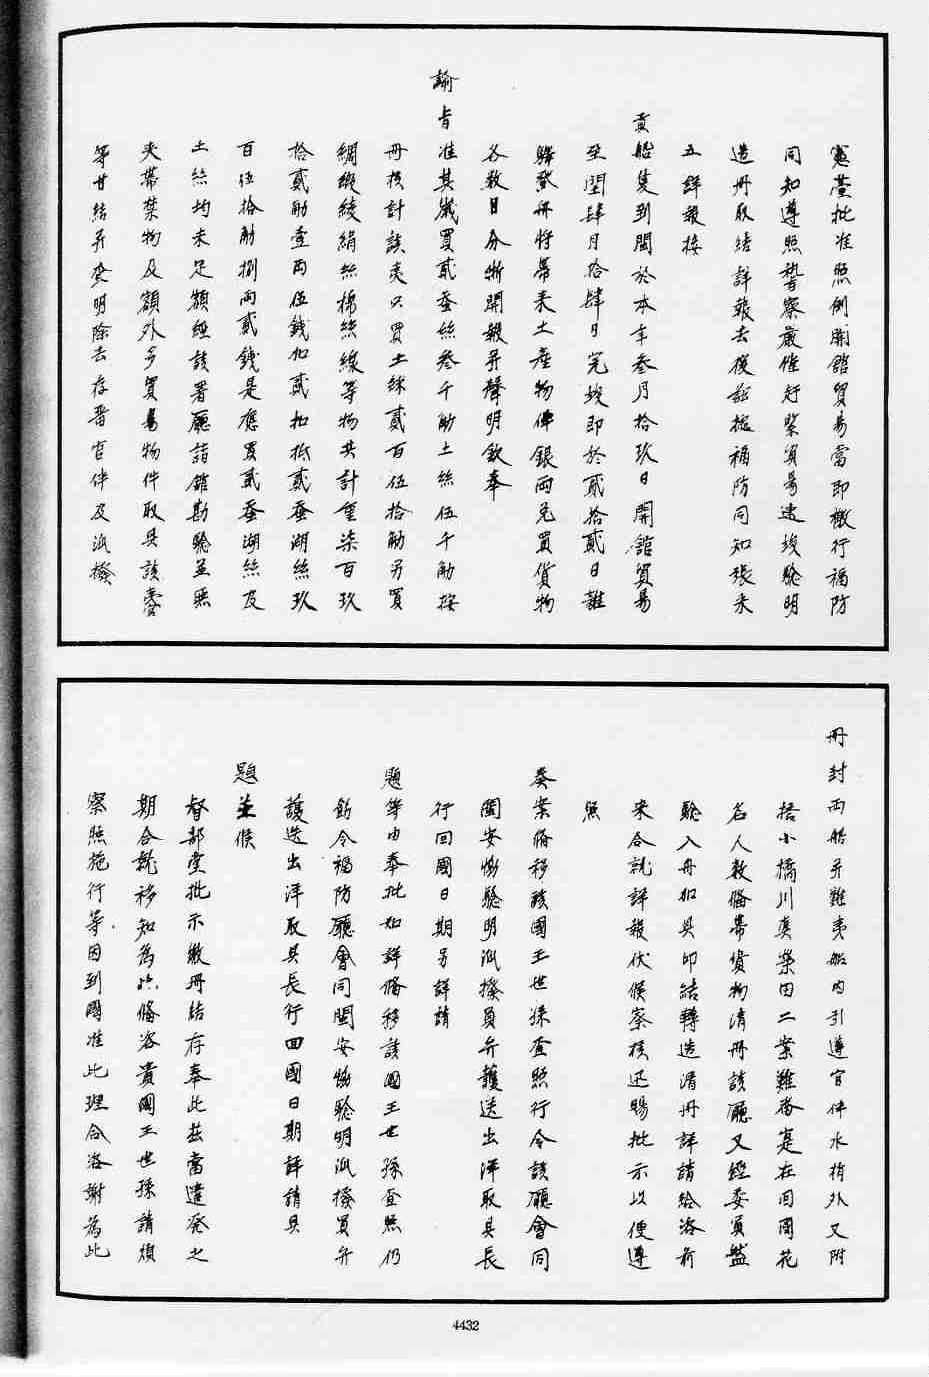 憲臺批准照例開館貿易當即檄行福防
同知遵照督察嚴催赶緊貿易速竣驗明
造冊取結詳報去後茲據福防同知張未
五詳報接
貢船隻到閩於本年叁月拾玖日開館貿易
至閏肆月拾肆日完竣即於貳拾貳日離
驛登舟將帶來土產物件銀兩兌買貨物
各數目分晰開報并聲明欽奉
諭旨准其歲買貳蚕絲叁千觔土絲伍千觔按
冊核計該夷只買土絲貳百伍拾觔另買
綢緞綾絹絲棉絲線等物共計重柒百玖
拾貳觔壹両伍錢加貳扣抵貳蚕湖絲玖
百伍拾觔捌両貳錢是應買貳蚕湖絲及
土絲均未足額經該署廳詣館勘驗並無
夾帶禁物及額外多買貿易物件取具該夷官
等甘結并登明除去存留官伴及派撥
冊封両船并難夷船内引導官伴水梢外又附
搭小橋川真榮田二案難番寔在回國花
名人数俻帶貨物清冊該廳又經委員盤
驗入冊加具印結轉造清冊詳請給咨前
来合就詳報伏候察核迅賜批示以便遵
照
奏案俻移該國王世孫查照行令該廳會同
閩安協驗明派撥員弁護送出洋取具長
行回國日期另詳請
題等由奉批如詳俻移該國王世孫查照仍
飭令福防廳會同閩安協驗明派撥員弁
護送出洋取具長行回國日期詳請具
題並候
督部堂批示繳冊結存奉此茲當遣發之
期合就移知為此俻咨貴國王世孫請煩
察照施行等因到國准此理合咨謝為此
4432